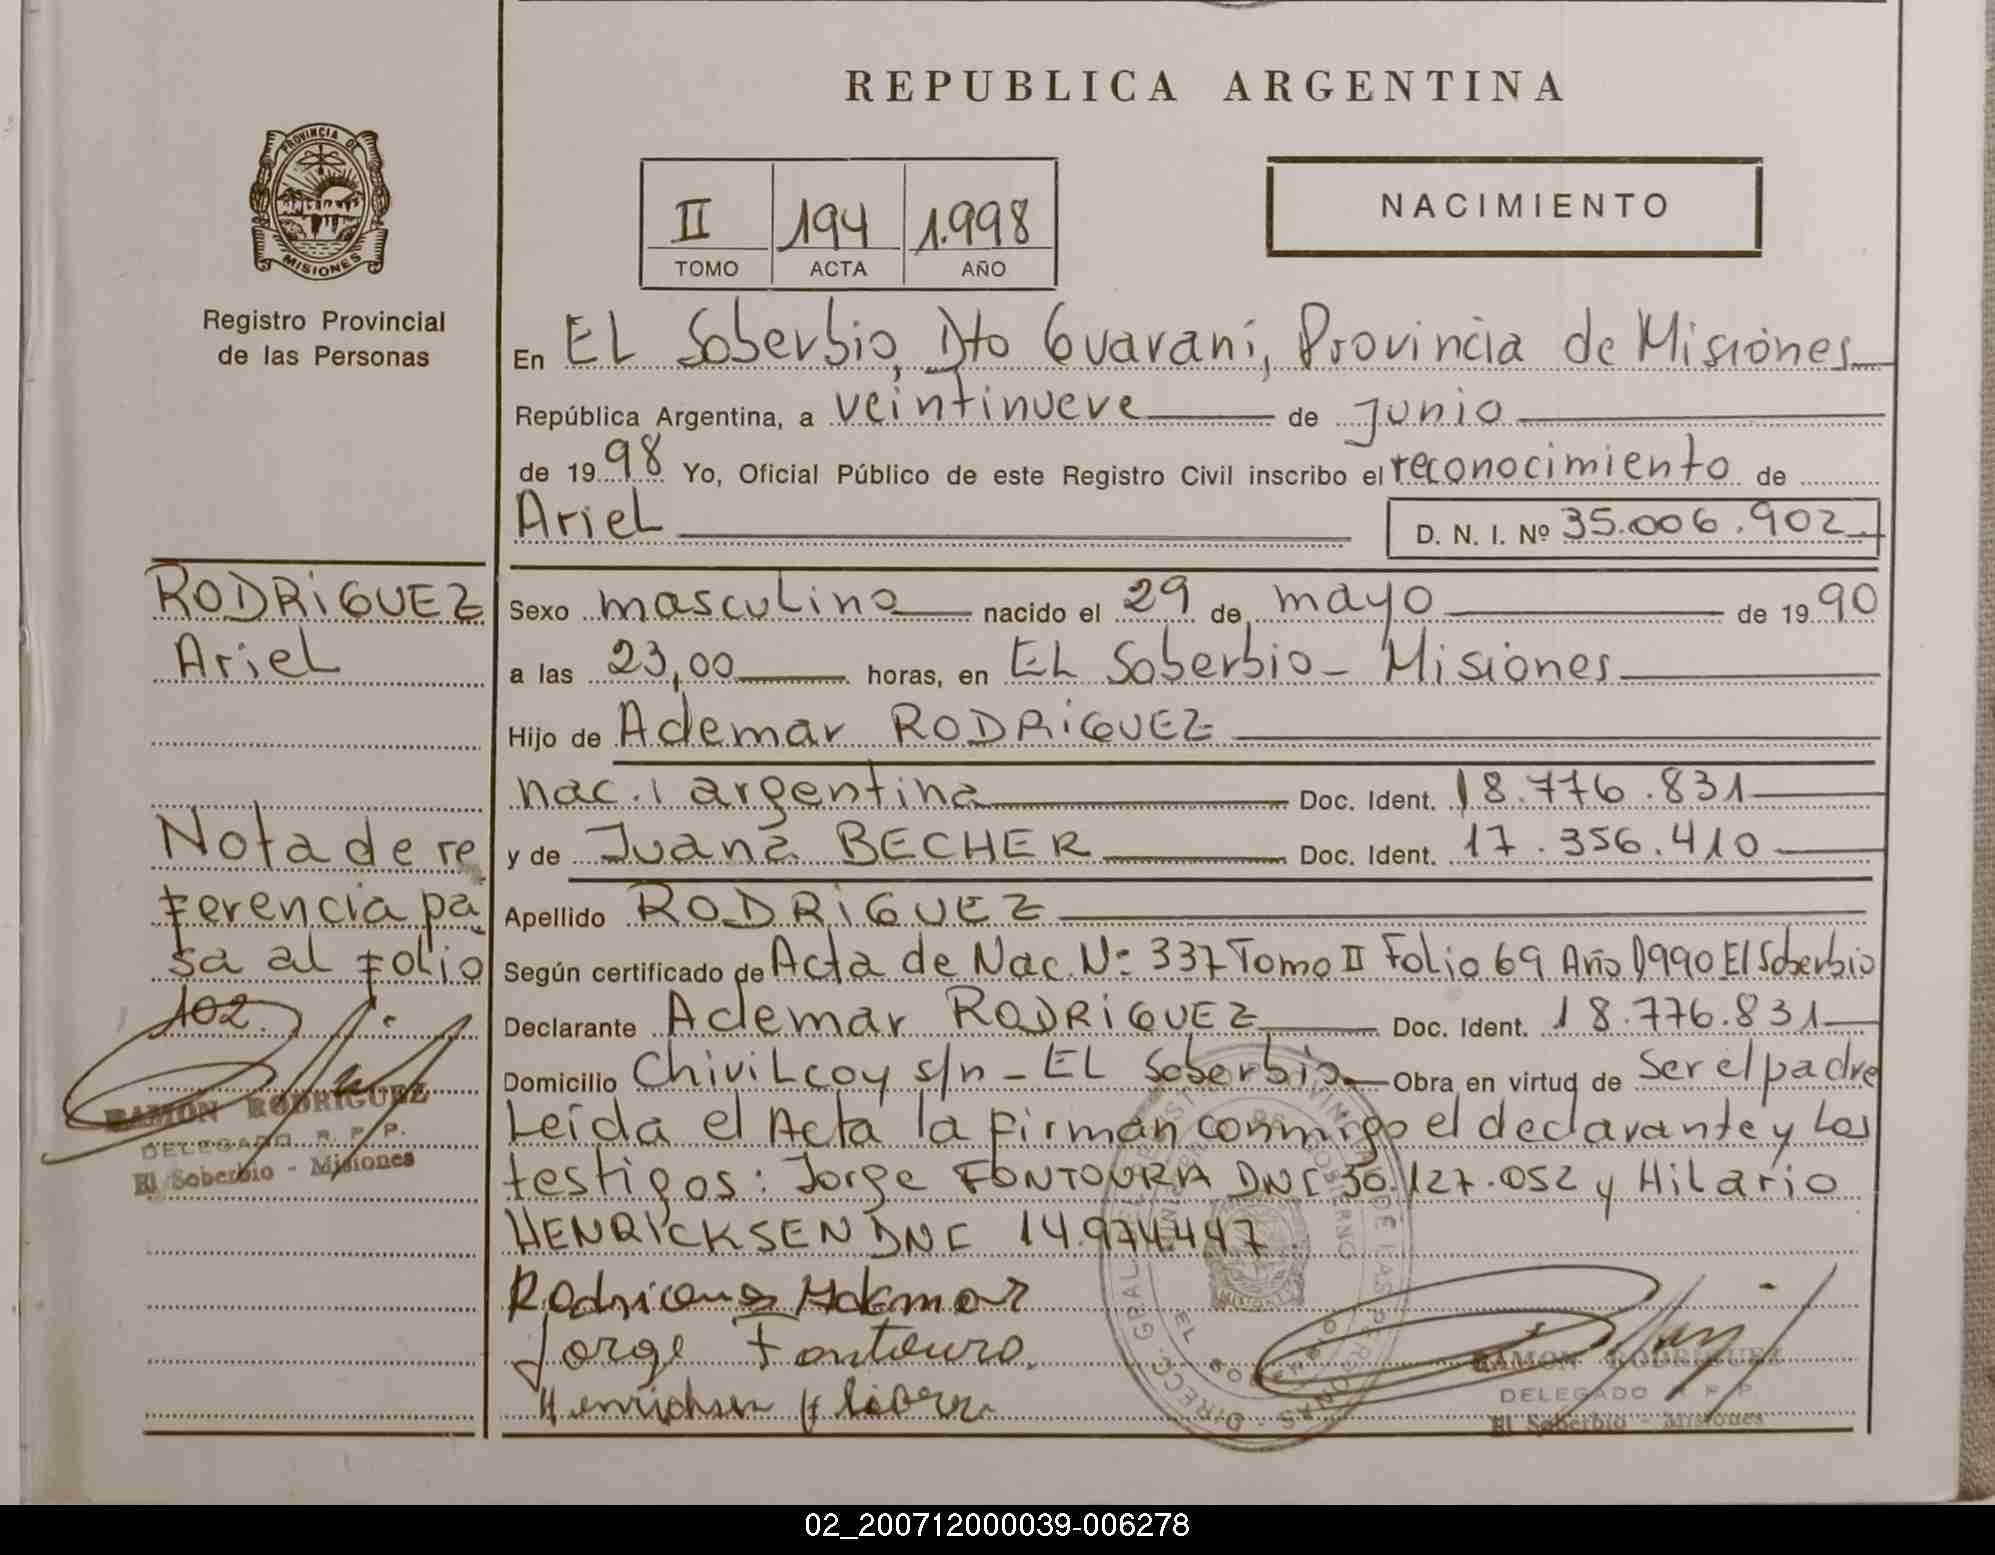 REPUBLICA ARGENTINA
PROVINCIA DE
MISIONES
Registro Provincial
de las Personas
II 194 1.998
TOMO ACTA AÑO
NACIMIENTO
En EL Soberbio, Dto Guaraní, Provincia de Misiones
República Argentina, a veintinueve de Junio
de 1998 Yo, Oficial Público de este Registro Civil inscribo el reconocimiento de
Ariel D. N. I. Nº 35.006.902
RODRIGUEZ
Ariel
Sexo masculino nacido el 29 de mayo de 1990
a las 23,00 horas, en EL Soberbio - Misiones
Hijo de Ademar RODRIGUEZ
nac. argentina Doc. Ident. 18.776.831
y de Juana BECHER Doc. Ident. 17.356.410
Apellido RODRIGUEZ
Según certificado de Acta de Nac. Nº 337 Tomo II Folio 69 Año 1990 El Soberbio
Declarante Ademar RODRIGUEZ Doc. Ident. 18.776.831
Domicilio Chivilcoy s/n - EL Soberbio Obra en virtud de Ser el padre
Leída el Acta la firman conmigo el declarante y los
testigos: Jorge FONTOURA DNI 30.127.052 y Hilario
HENRICKSEN DNI 14.974.447
Nota de re
ferencia pa
sa al folio
102.
RAMON RODRIGUEZ
DELEGADO R. P. P.
El Soberbio - Misiones
Rodriguez Ademar
Jorge Fontoura
RAMON RODRIGUEZ
DELEGADO R P P
El Soberbio - Misiones
02_200712000039-006278